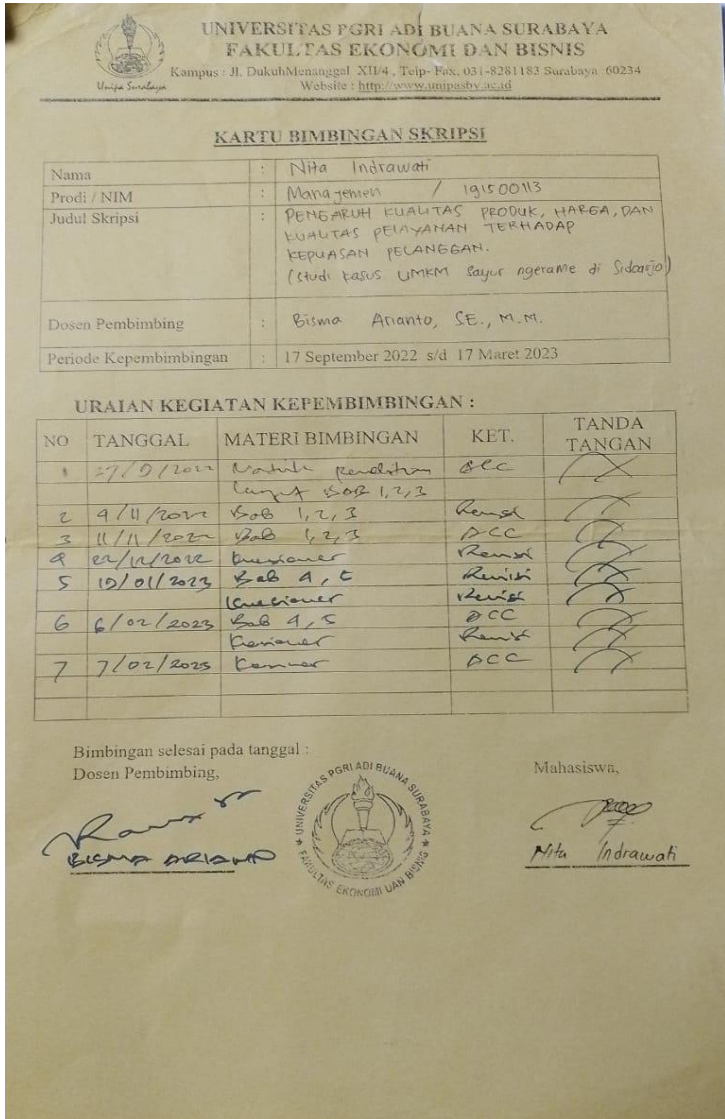 UNIVERSITAS PGRI ADI BUANA SURABAYA
FAKULTAS EKONOMI DAN BISNIS
Kampus : Jl. DukuhMenanggal XII/4 , Telp- Fax. 031-8281183 Surabaya 60234
Website : http://www.unipasby.ac.id
Unipa Surabaya
KARTU BIMBINGAN SKRIPSI
Nama : Nita Indrawati
Prodi / NIM : Manajemen / 191500113
Judul Skripsi : PENGARUH KUALITAS PRODUK, HARGA, DAN
KUALITAS PELAYANAN TERHADAP
KEPUASAN PELANGGAN.
(Studi kasus UMKM Sayur ngerame di Sidoarjo)
Dosen Pembimbing : Bisma Arianto, SE., M.M.
Periode Kepembimbingan : 17 September 2022 s/d 17 Maret 2023
URAIAN KEGIATAN KEPEMBIMBINGAN :
NO TANGGAL MATERI BIMBINGAN KET. TANDA TANGAN
1 27/9/2022 ACC
BAB 1,2,3
2 9/11/2022 Bab 1,2,3 Revisi
3 11/11/2022 Bab 1,2,3 ACC
4 22/12/2022 Kuesioner Revisi
5 19/01/2023 Bab 4, 5 Revisi
Kuesioner Revisi
6 6/02/2023 Bab 4,5 ACC
Revisi
7 7/02/2023 ACC
Bimbingan selesai pada tanggal :
Dosen Pembimbing,
Mahasiswa,
UNIVERSITAS PGRI ADI BUANA SURABAYA
FAKULTAS EKONOMI DAN BISNIS
BISMA ARIANTO
Nita Indrawati